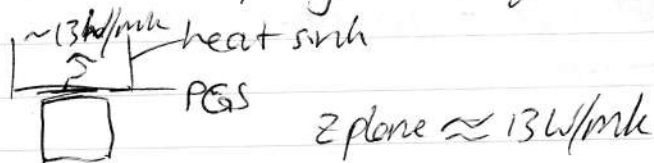 ~13W/mk
heat sink
PGS
z plane ≈ 13W/mk